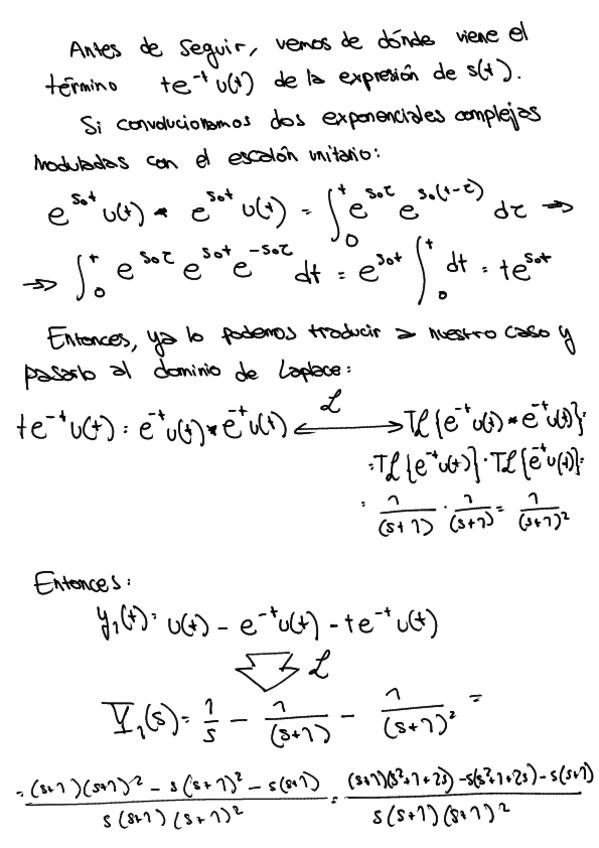 Antes de seguir, vemos de dónde viene el
término te^-t u(t) de la expresión de s(t).
Si convolucionamos dos exponenciales complejas
moduladas con el escalón unitario:
e^{s₀t} u(t) * e^{s₀t} u(t) = ∫₀^t e^{s₀τ} e^{s₀(t-τ)} dτ ⇒
⇒ ∫₀^t e^{s₀τ} e^{s₀t} e^{-s₀τ} dt = e^{s₀t} ∫₀^t dt = te^{s₀t}
Entonces, ya lo podemos traducir a nuestro caso y
pasarlo al dominio de Laplace:
te^-t u(t) = e^-t u(t) * e^-t u(t) ⟷ℒ Tℒ{e^-t u(t) * e^-t u(t)} =
= Tℒ{e^-t u(t)} · Tℒ{e^-t u(t)} =
= 1/(s+1) · 1/(s+1) = 1/(s+1)²
Entonces:
y₁(t) = u(t) - e^-t u(t) - te^-t u(t)
⇓ ℒ
Y₁(s) = 1/s - 1/(s+1) - 1/(s+1)² =
= ((s+1)(s+1)² - s(s+1)² - s(s+1))/(s(s+1)(s+1)²) = ((s+1)(s²+1+2s) - s(s²+1+2s) - s(s+1))/(s(s+1)(s+1)²)